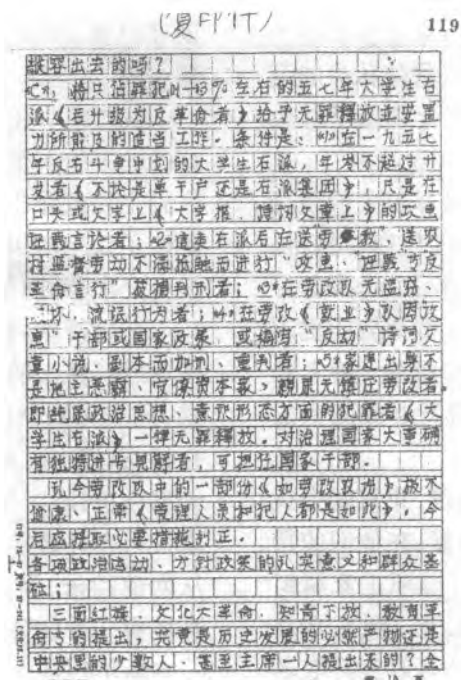 (复印件)
119
纵容出去的吗？
将只占罪犯 左右的五七年大学生右
派《后升级为反革命者》给予无罪释放並安置
力所能及的适当工作。条件是：〈1〉在一九五七
年反右斗争中划的大学生右派，年令不超过廿
岁者《不论是单干户还是右派集团》，只是在
口头或文字上《大字报、诗词文章上》的攻击
诬蔑言论者；〈2〉这类右派后在送劳教、送农
村监督劳动不满抵触而进行“攻击、诬蔑”等反
革命言行”被捕判刑者；〈3〉在劳改队无逃跑、
破坏、流氓行为者；〈4〉在劳改《就业》队因攻
击”干部或国家政策、或编写“反动”诗词文
章小说、剧本而加刑、重判者；〈5〉家庭出身不
是地主恶霸、官僚资本家、亲属无镇压劳改者。
即纯属政治思想、意识形态方面的犯罪者《大
学生右派》一律无罪释放。对治理国家大事确
有独特进步见解者，可担任国家干部。
现今劳改队中的一部份《如劳改股份》极不
健康、正常《管理人员和犯人都是如此》，今
后应采取必要措施纠正。
各项政治运动、方针政策的现实意义和群众基
础：
三面红旗、文化大革命、知青下放、教育革
命等的提出，究竟是历史发展的必然产物还是
中央里的少数人、甚至主席一人提出来的？全